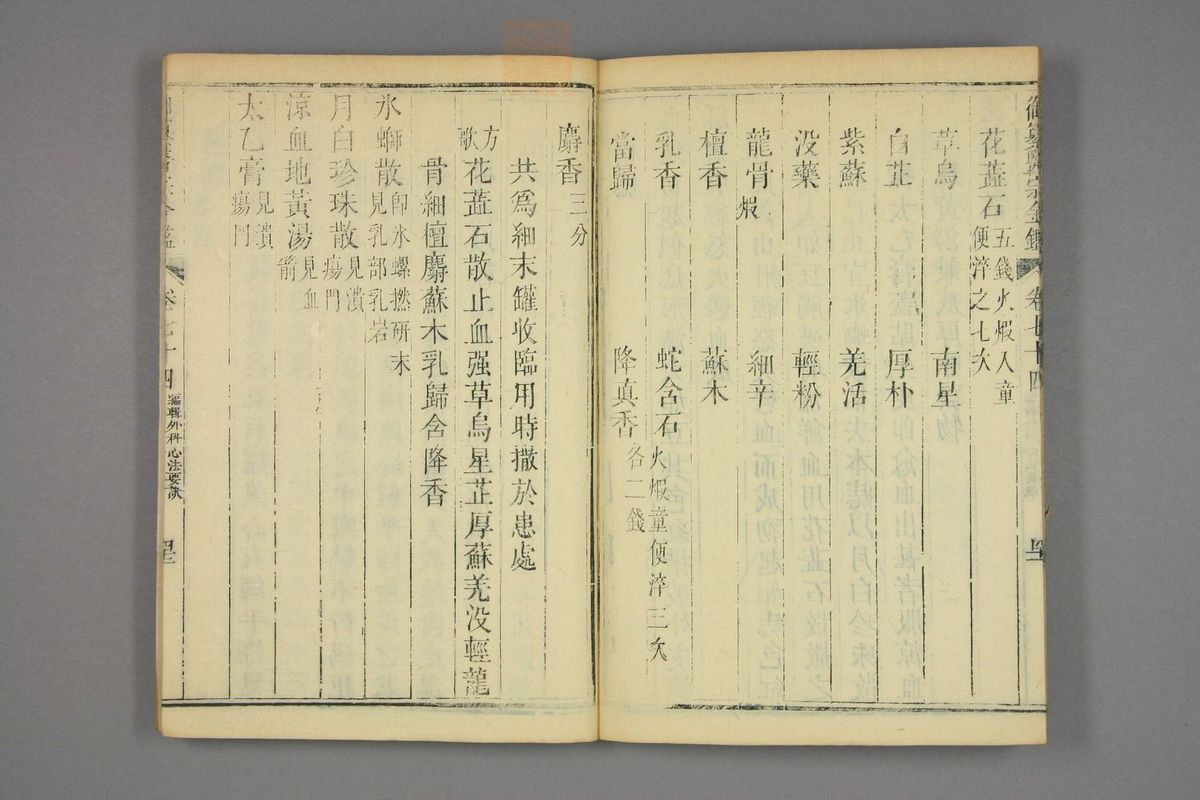 御纂醫宗金鑑
卷七十四
花蕋石五錢火煆入童便淬之七次
草烏　南星
白芷　厚朴
紫蘇　羌活
没藥　輕粉
龍骨煆　細辛
檀香　蘇木
乳香　蛇含石火煆童便淬三次
當歸　降真香各二錢
麝香三分
共爲細末罐收臨用時撒於患處
方歌　花蕋石散止血强草烏星芷厚蘇羌没輕龍
骨細檀麝蘇木乳歸含降香
氷螄散即氷螺撚研末見乳部乳岩
月白珍珠散見潰瘍門
涼血地黃湯見血箭
太乙膏見潰瘍門
卷七十四
編輯外科心法要訣